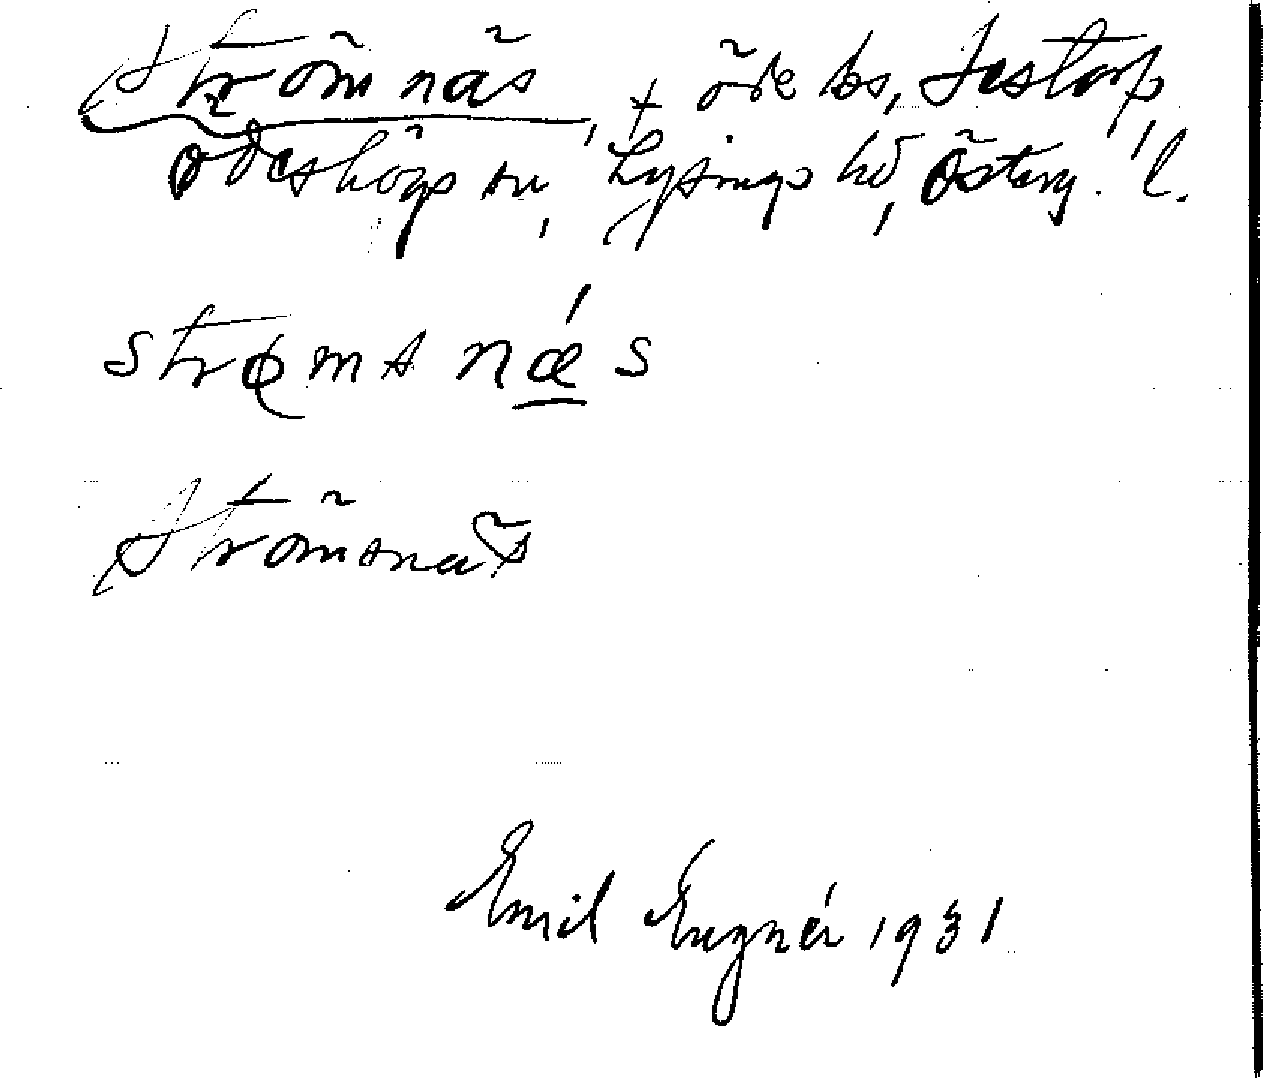 Strömnäs, + öde bs, Isstorp,
Ödeshögs sn, Lysings hd, Österg. l.
strømsnǽs
Strömsnäs
Emil Engnér 1931